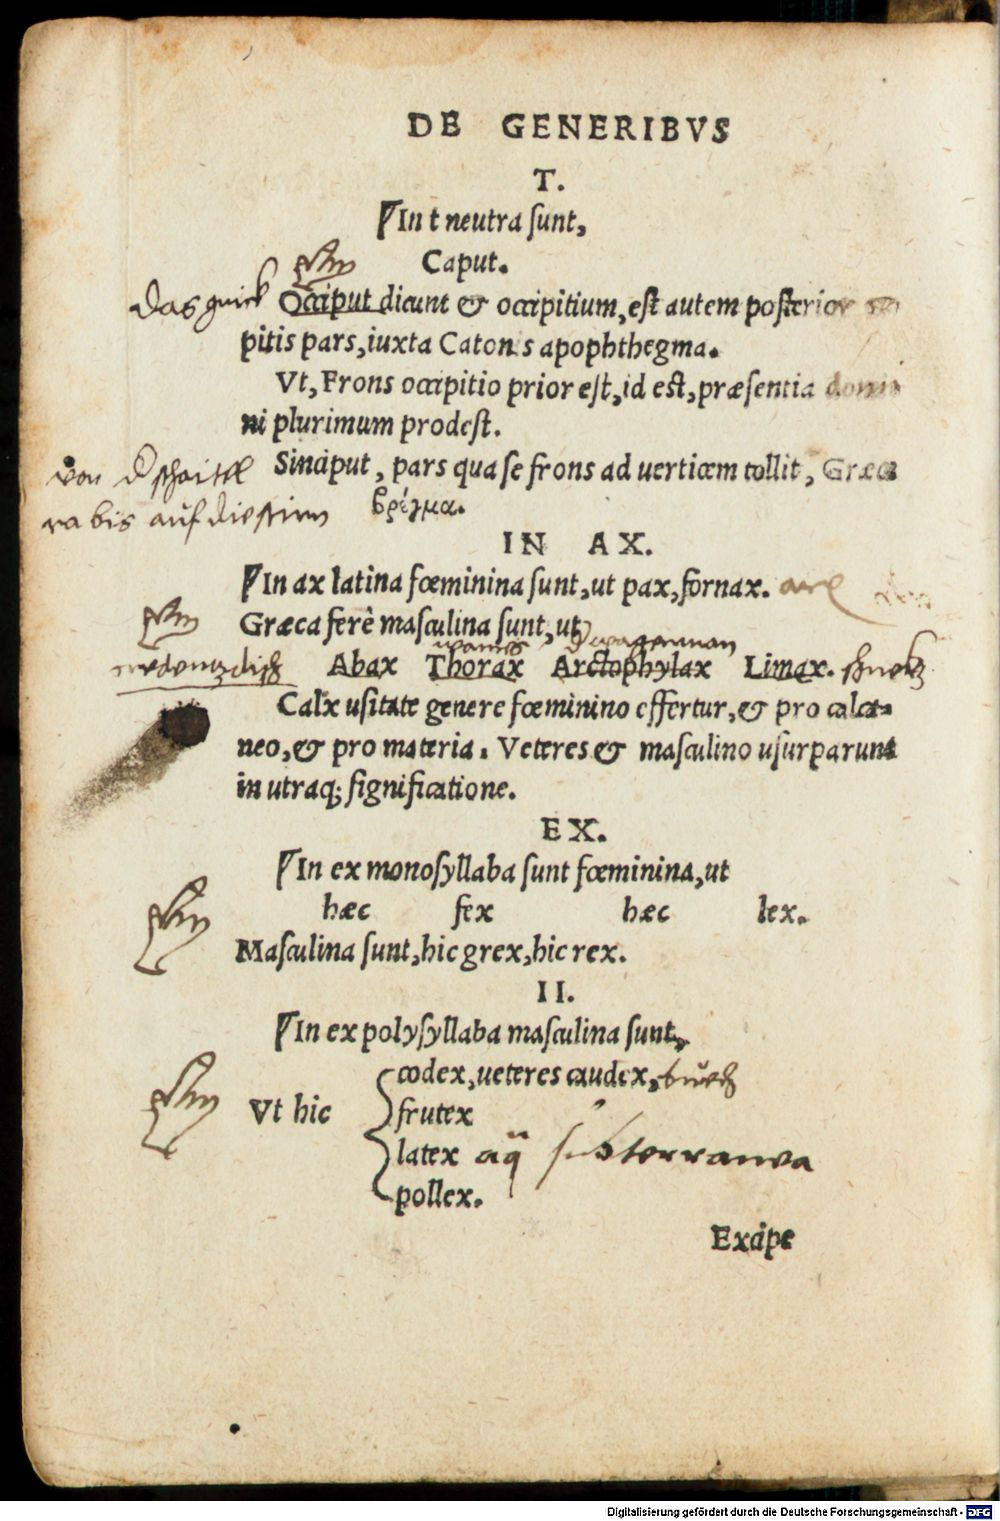 DE GENERIBVS
T.
In t neutra ſunt,
Caput.
das gnick Occiput dicunt & occipitium, eſt autem poſterior
pitis pars, iuxta Catonis apophthegma.
Vt, Frons occipitio prior eſt, id eſt, præſentia domi
ni plurimum prodeſt.
Sinciput, pars qua ſe frons ad uerticem tollit, Græca
von d ſchaitl
ra bis auf die ſtirn βρέγμα.
IN AX.
In ax latina fœminina ſunt, ut pax, fornax.
Græca ferè maſculina ſunt, ut
Abax Thorax Arctophylax Limax. ſchneck
Calx uſitate genere fœminino effertur, & pro calca-
neo, & pro materia. Veteres & maſculino uſurparunt
in utraq; ſignificatione.
EX.
In ex monoſyllaba ſunt fœminina, ut
hæc fex hæc lex.
Maſculina ſunt, hic grex, hic rex.
II.
In ex polyſyllaba maſculina ſunt,
codex, ueteres caudex, buech
Vt hic frutex
latex aq̈ ſubterranea
pollex.
Excipe
Digitalisierung gefördert durch die Deutsche Forschungsgemeinschaft - DFG